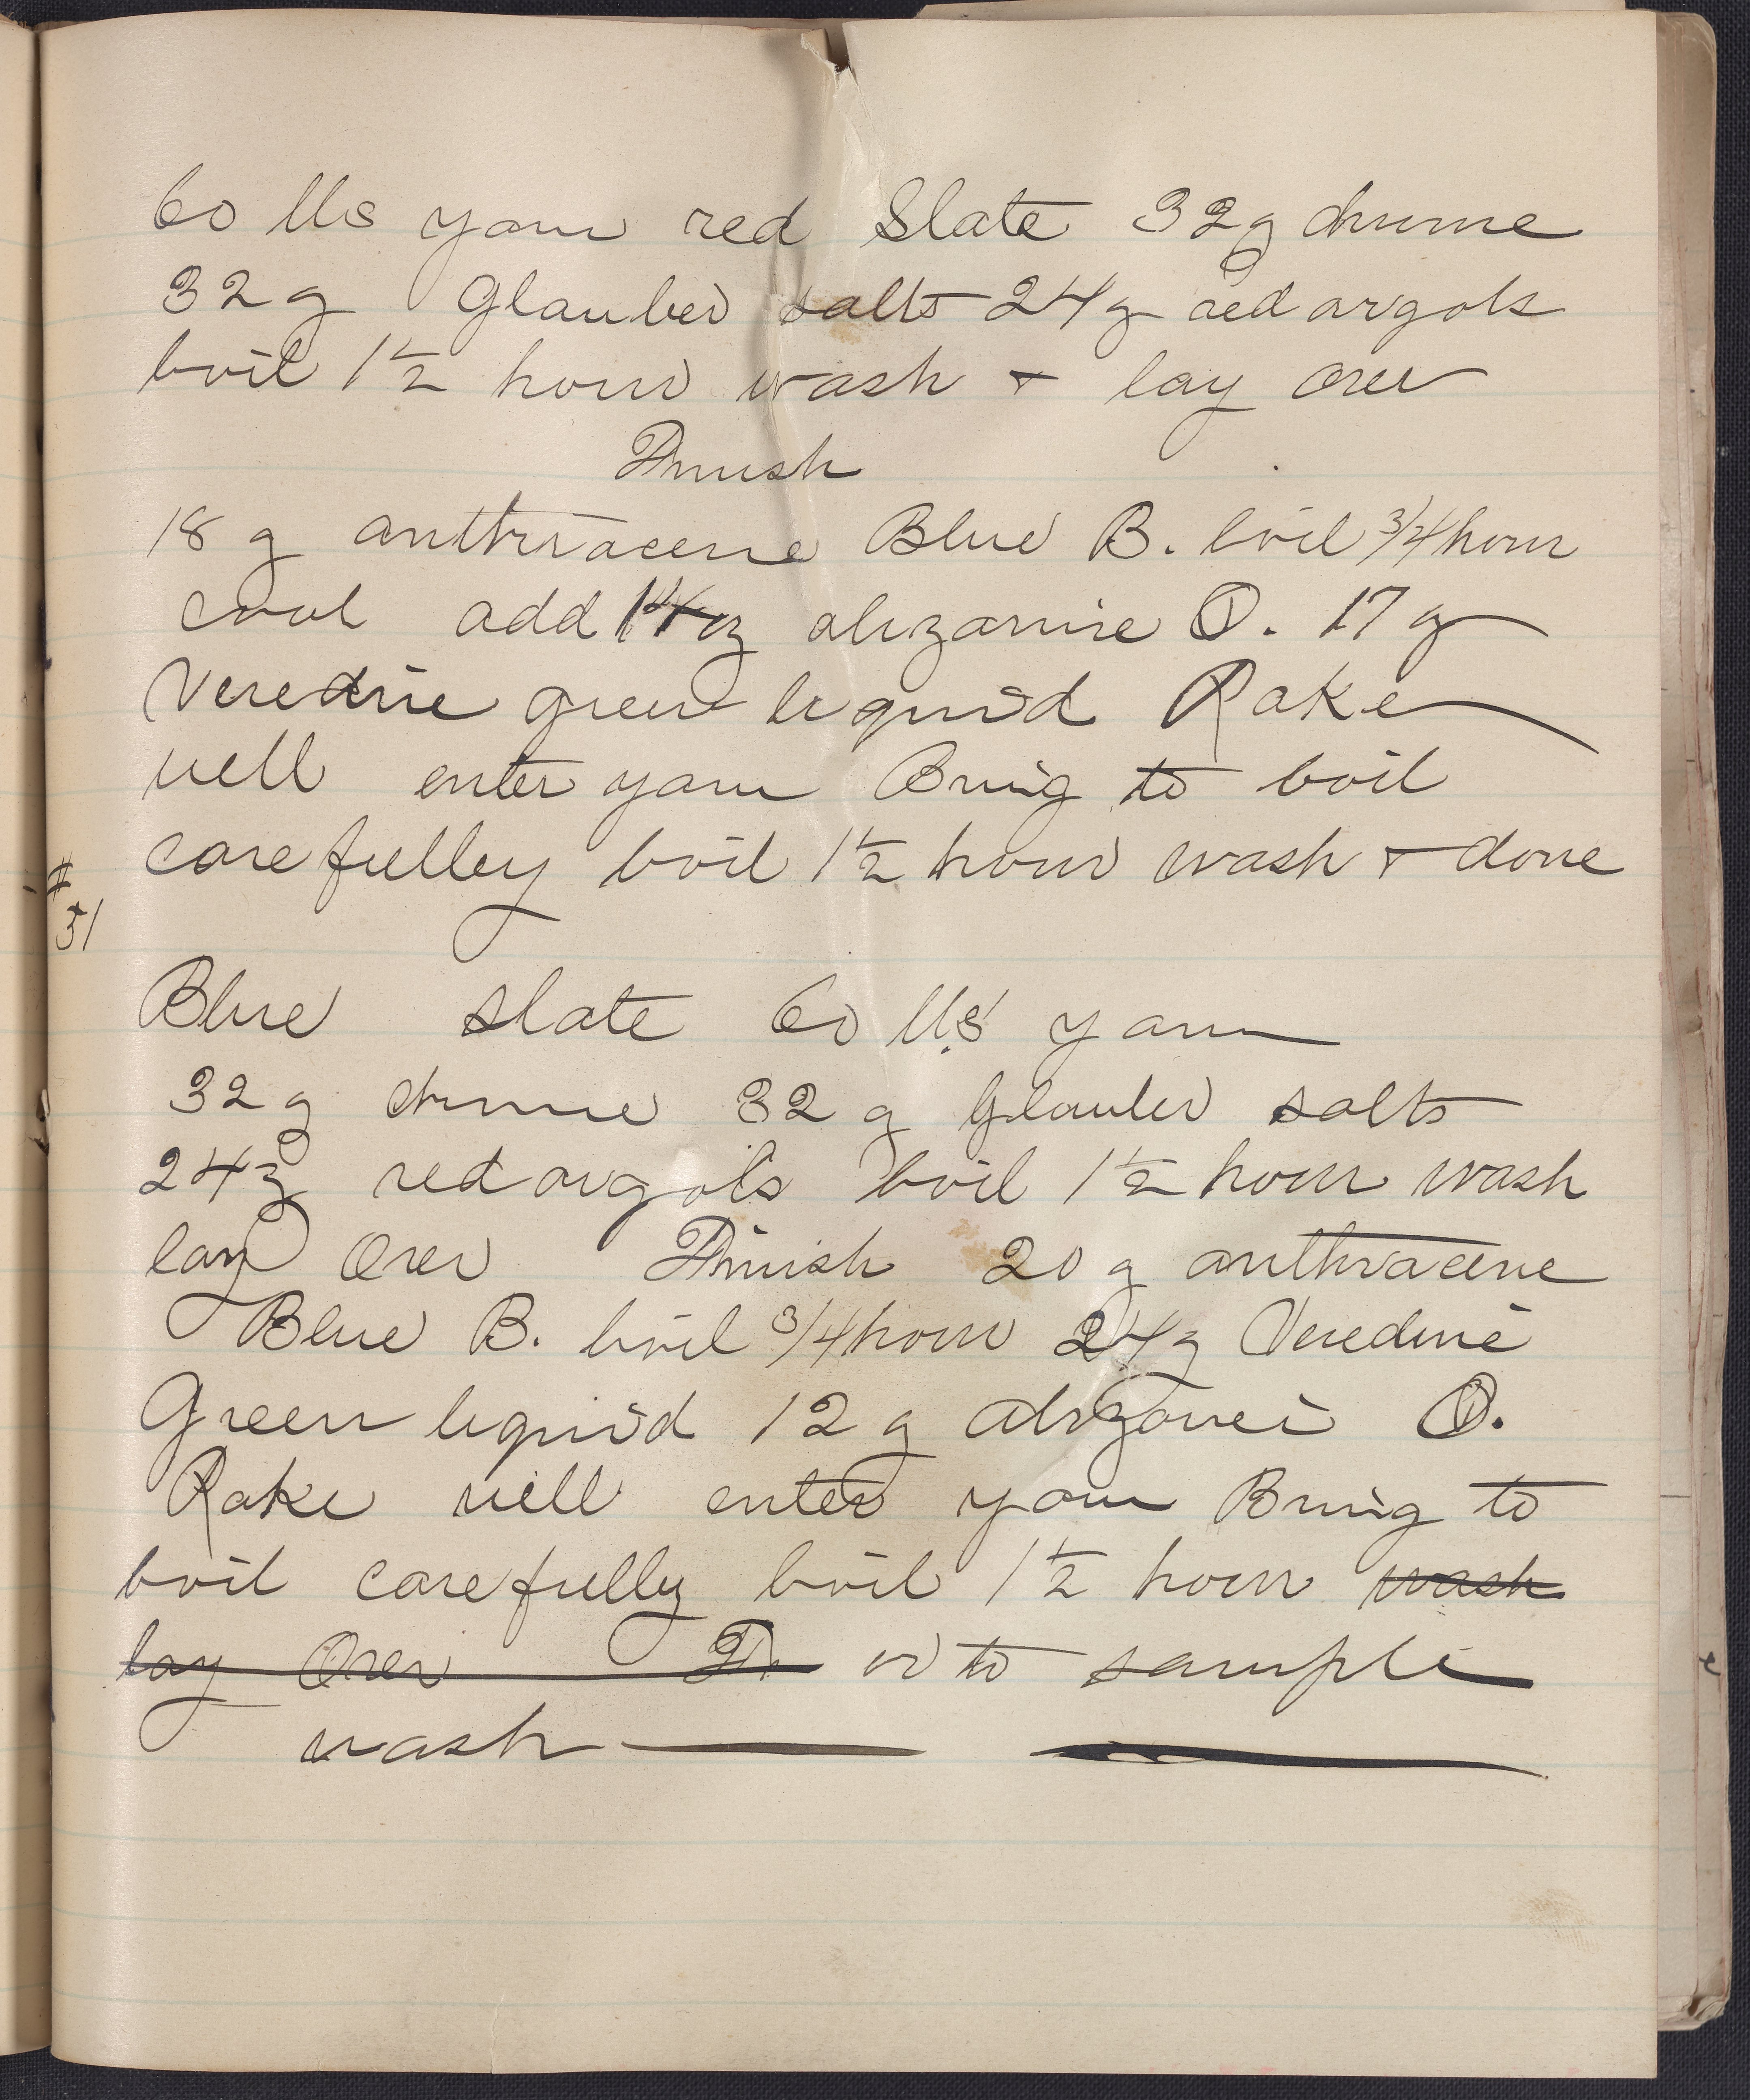 60 lbs yarn red Slate 32 oz chrome
32 oz Glauber salts 24 oz red argols
boil 1 1/2 hour wash + lay over
Finish
18 oz anthracene Blue B. boil 3/4 hour
cool add 14 oz alizarine O. 17 oz
Veredine green liquid Rake
well enter yarn Bring to boil
carefulley boil 1 1/2 hour wash + done
# 51
Blue slate 60 lbs yarn
32 oz chrome 32 oz Glauber salts
24 oz red argols boil 1 1/2 hour wash
lay over Finish 20 oz anthracene
Blue B. boil 3/4 hour 24 oz Veredine
Green liquid 12 oz alizarine O.
Rake well enter yarn Bring to
boil carefully boil 1 1/2 hour wash
lay over Fi or to sample
wash